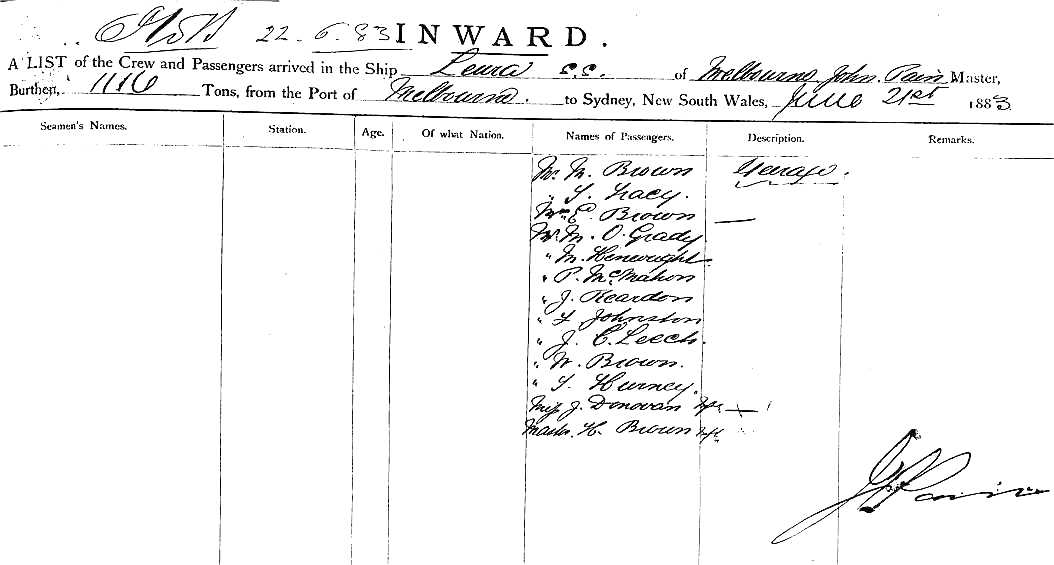 22.6.83 INWARD.
A LIST of the Crew and Passengers arrived in the Ship Leura S.S. of Melbourne, John Pain Master,
Burthen, 1116 Tons, from the Port of Melbourne. to Sydney, New South Wales, June 21st 1883
Seamen's Names. Station. Age. Of what Nation. Names of Passengers. Description. Remarks.
Mr. M. Brown Steerage.
" T. Tracy.
Mrs E. Brown
Mr. M. O. Grady
" M. Henwright
" P. McMahon
" J. Reardon
" Johnston
" J. C. Leech.
" W. Brown.
" T. Hurney.
Miss J. Donovan
Master. H. Brown
J Pain